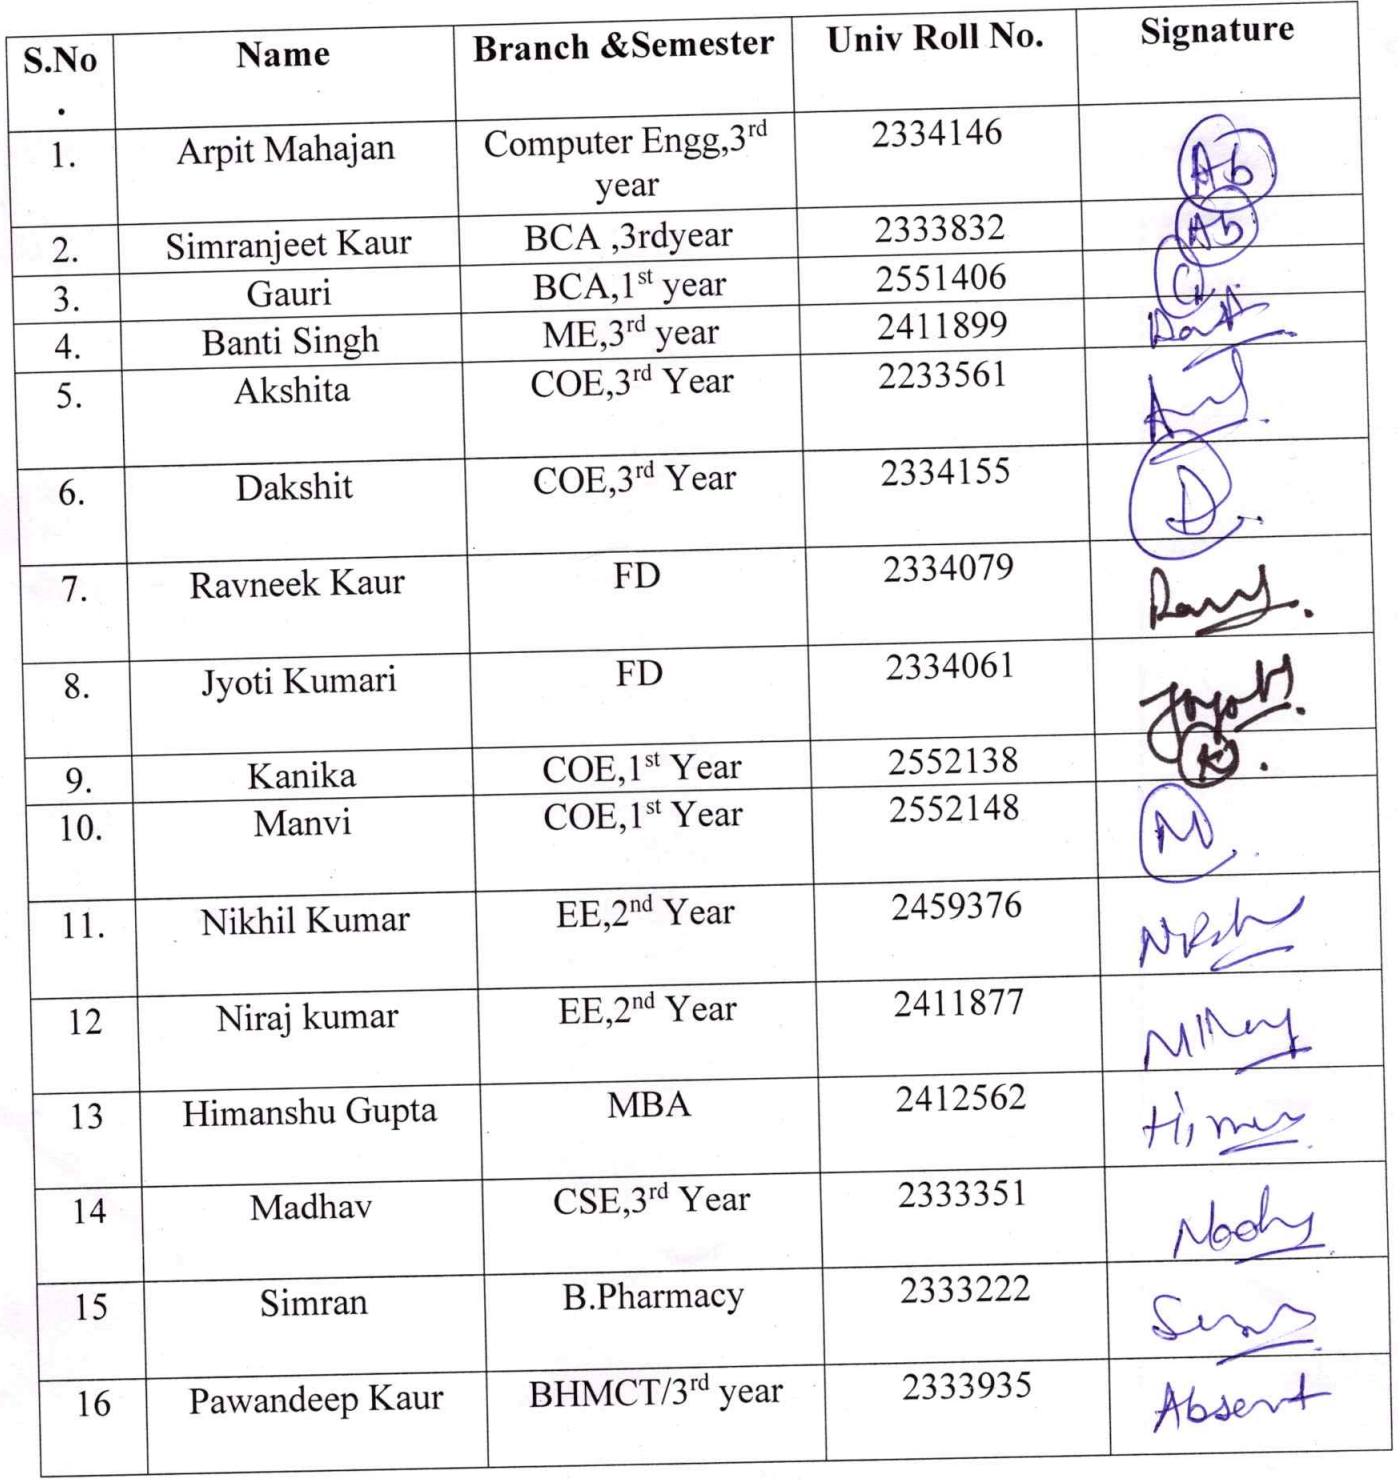 S.No. Name Branch &Semester Univ Roll No. Signature
1. Arpit Mahajan Computer Engg,3rd year 2334146 Ab
2. Simranjeet Kaur BCA ,3rdyear 2333832 Ab
3. Gauri BCA,1st year 2551406
4. Banti Singh ME,3rd year 2411899
5. Akshita COE,3rd Year 2233561
6. Dakshit COE,3rd Year 2334155 D
7. Ravneek Kaur FD 2334079
8. Jyoti Kumari FD 2334061
9. Kanika COE,1st Year 2552138 K
10. Manvi COE,1st Year 2552148 M
11. Nikhil Kumar EE,2nd Year 2459376
12 Niraj kumar EE,2nd Year 2411877
13 Himanshu Gupta MBA 2412562
14 Madhav CSE,3rd Year 2333351
15 Simran B.Pharmacy 2333222
16 Pawandeep Kaur BHMCT/3rd year 2333935 Absent